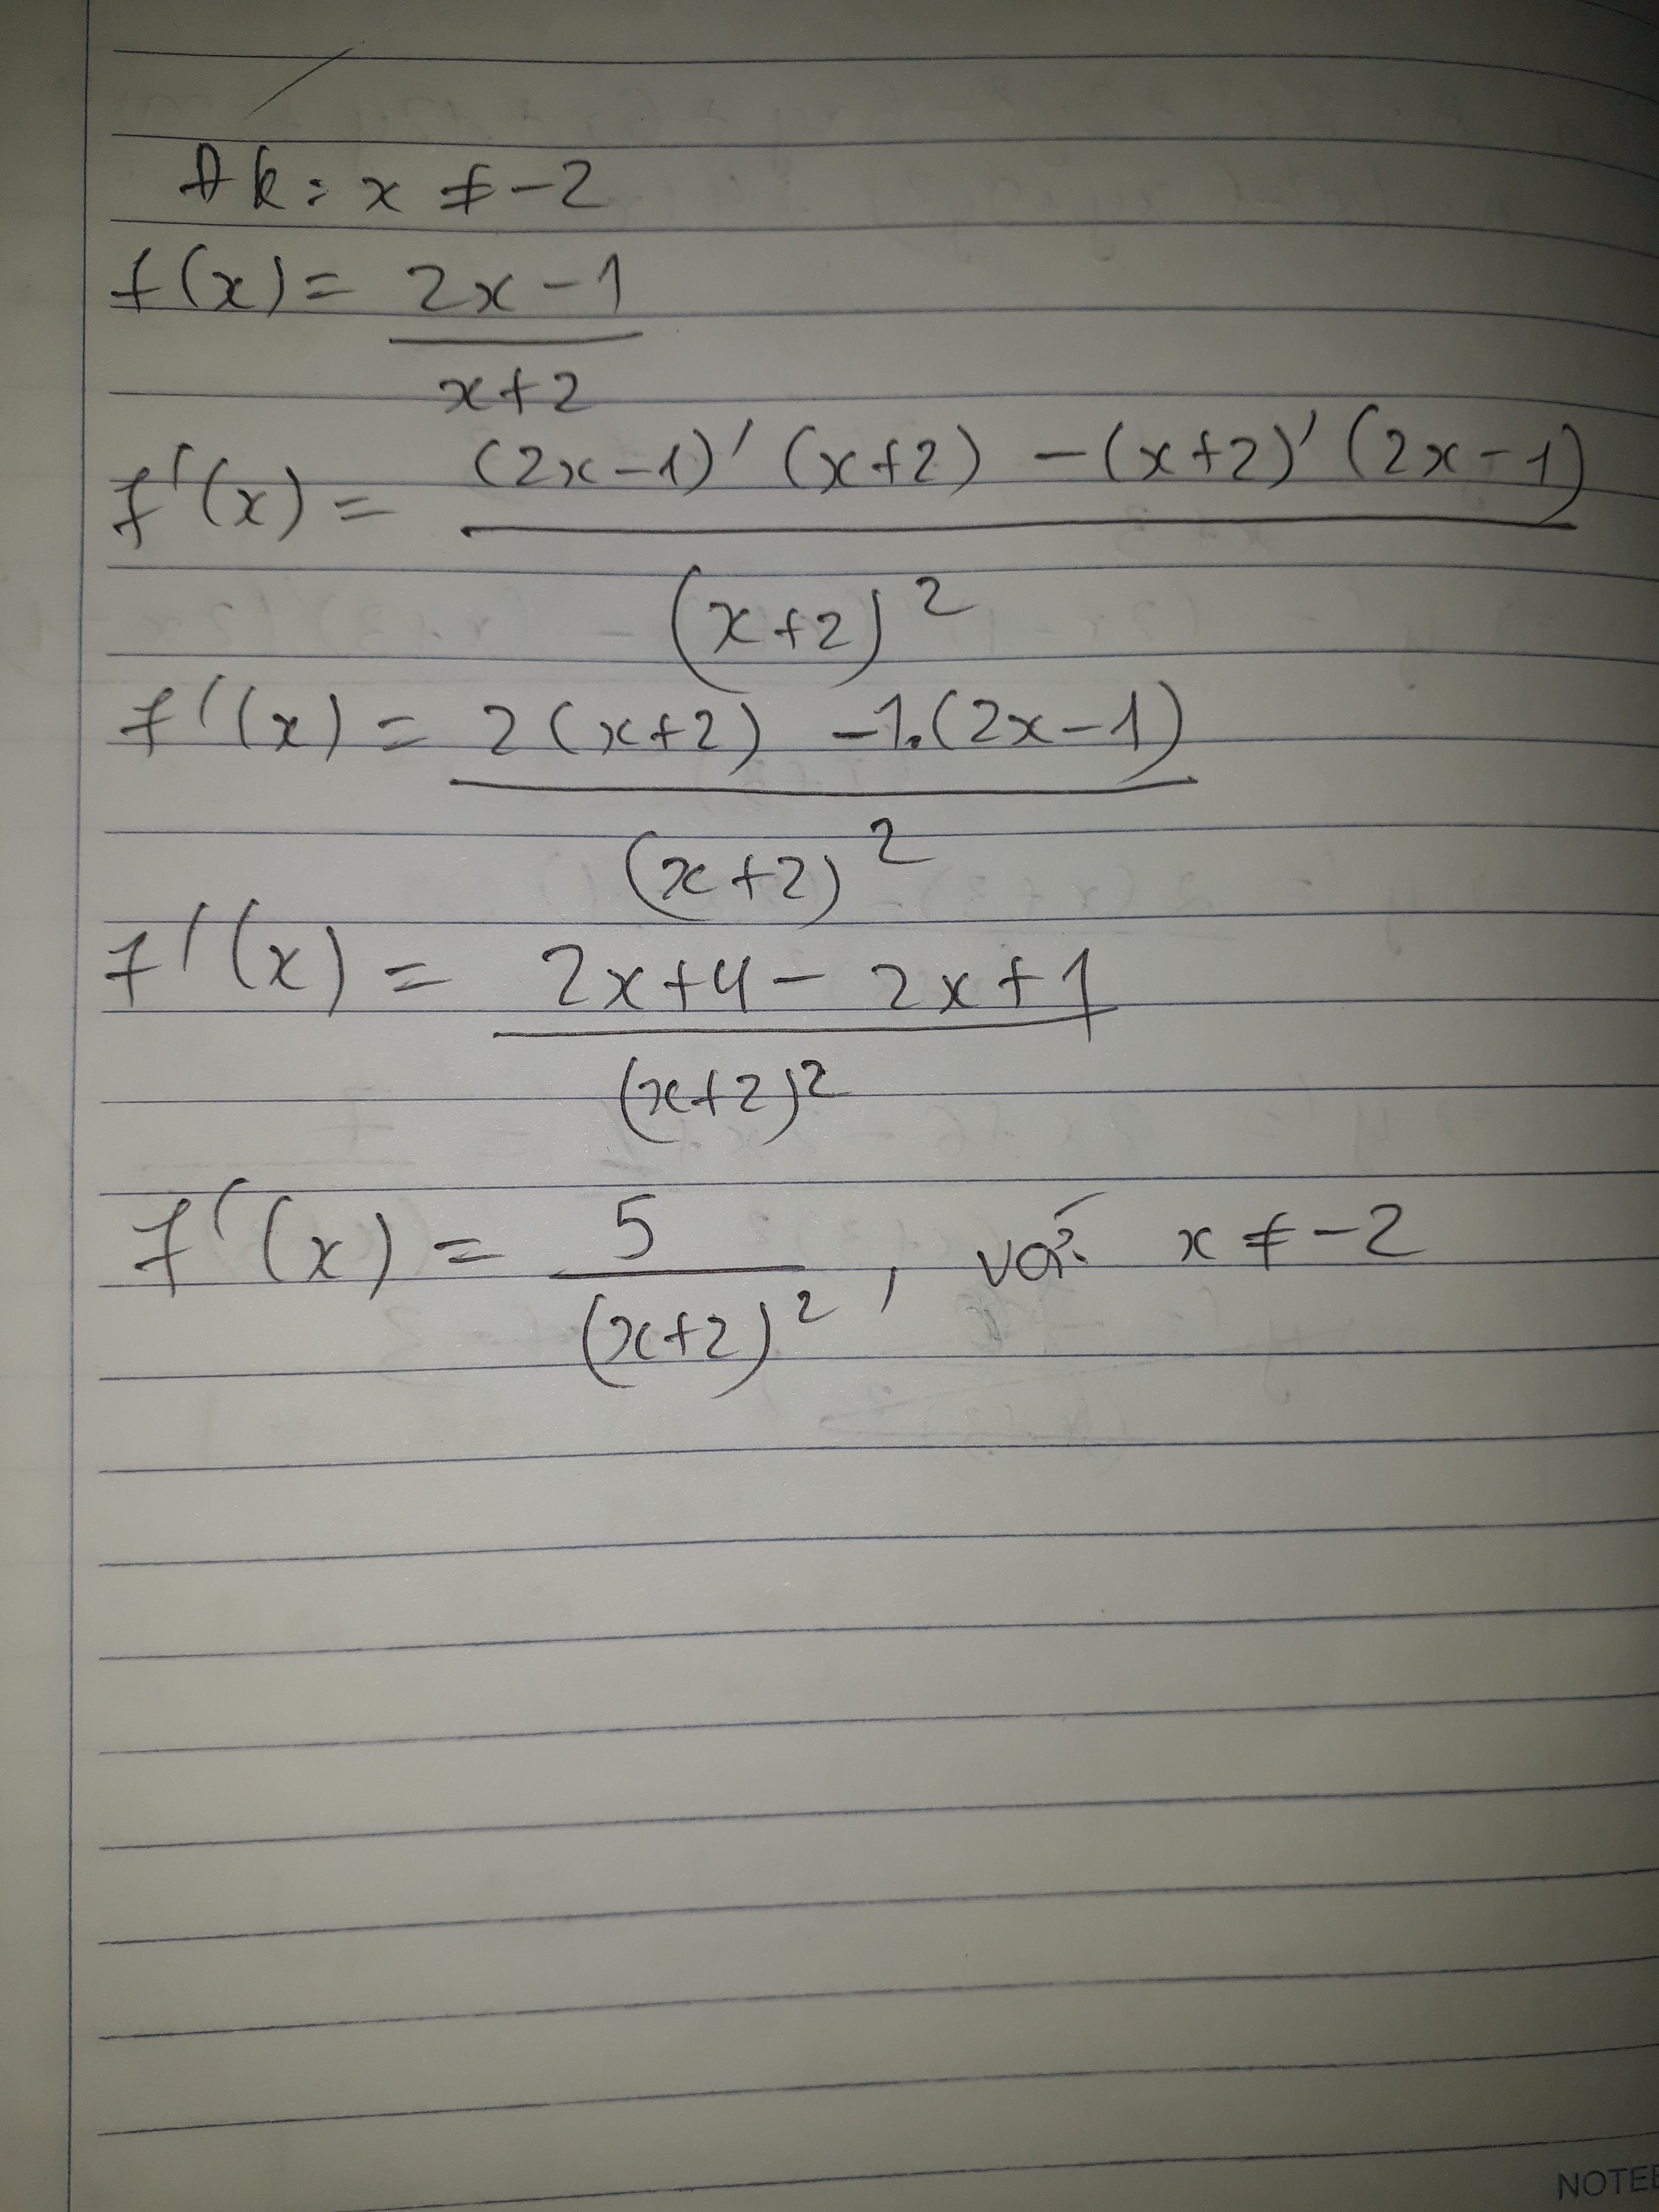 Đk: x ≠ -2
f(x) = (2x - 1)/(x+2)
f'(x) = ((2x-1)' (x+2) - (x+2)' (2x-1))/(x+2)²
f'(x) = (2(x+2) - 1.(2x-1))/(x+2)²
f'(x) = (2x+4 - 2x+1)/(x+2)²
f'(x) = 5/(x+2)², với x ≠ -2